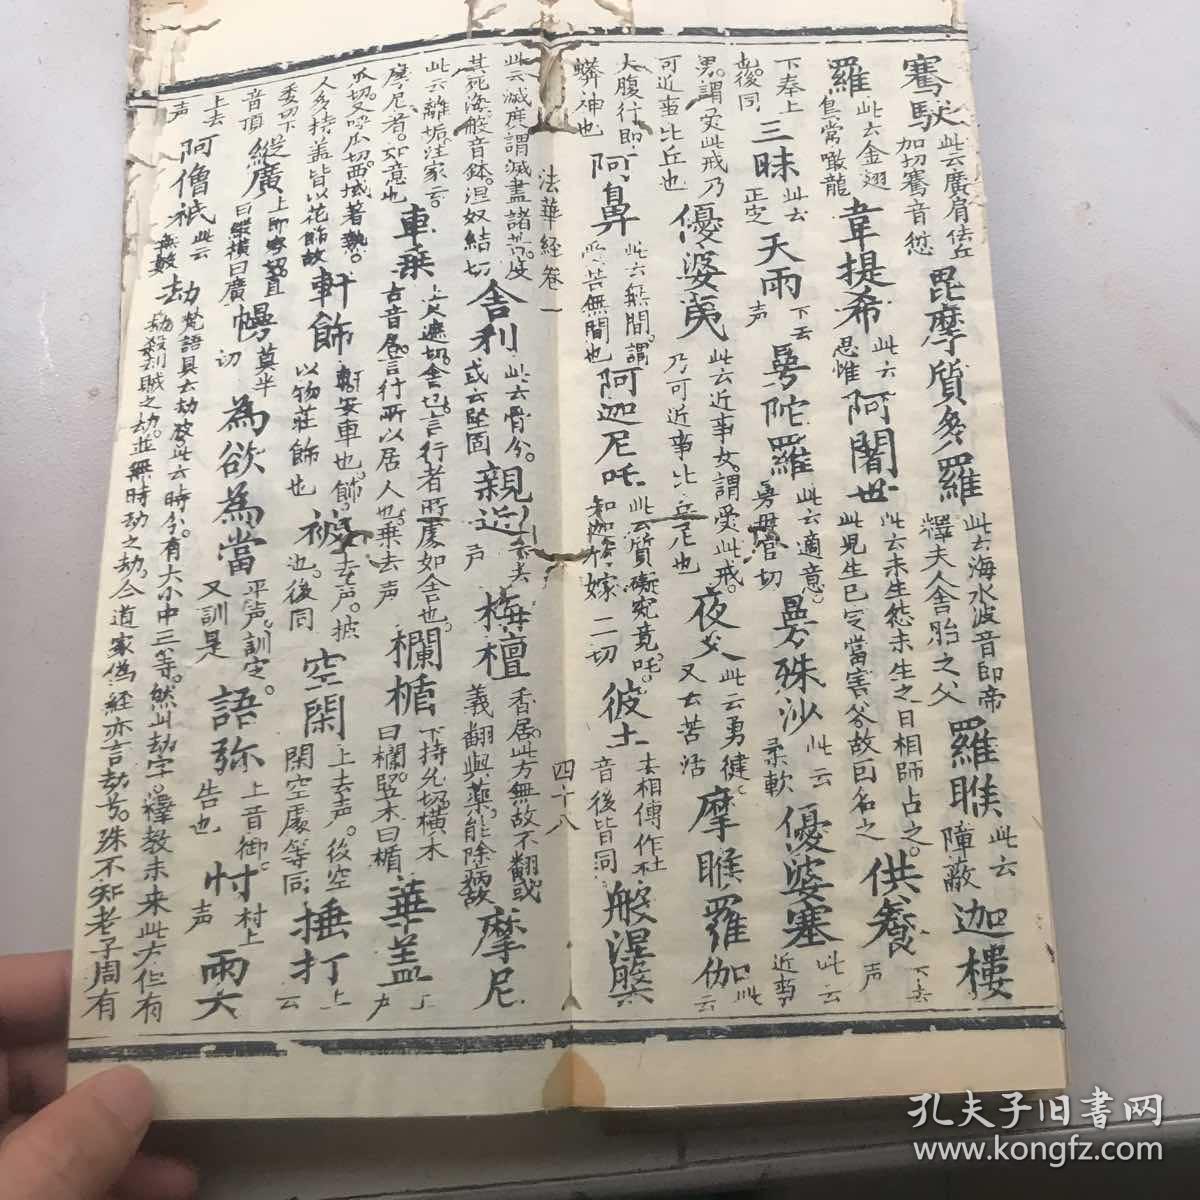 騫馱 此云廣肩佉丘加切騫音愆 毘摩質多羅 此云海水波音即帝釋夫人舍脂之父 羅睺 此云障蔽 迦樓
羅 此云金翅鳥常噉龍 韋提希 此云思惟 阿闍世 此云未生怨未生之日相師占之。此兒生已定當害爷故曰名之 供養 下去声
下奉上也。後同 三昧 此云正定 天雨 下去声 曼陀羅 此云適意。 曼殊沙 此云柔軟 優婆塞 此云近事
男。謂受此戒乃可近事比丘也 優婆夷 此云近事女。謂受此戒。乃可近事比丘尼也 夜叉 此云勇健又云苦活 摩睺羅伽 此云
大腹行即蟒神也 阿鼻 此云無間。謂受苦無間也 阿迦尼吒 此云質礙究竟。吒 彼土 去相傳作社音後皆同 般涅槃
法華經卷一 四十八
此云滅度謂滅盡諸苦。度其死海。般音鉢。涅奴結切 舍利 此云骨分。或云堅固 親近 声 栴檀 香居。此方無故不翻或義翻與藥。能除病故 摩尼
此云離垢。注家云。摩尼者。如意也 車乗 古音居。言行所以居人也。乗去声 欄楯 下持允切。横木曰欄。竪木曰楯 華盖
瓜切。又呼瓜切。西域著熱。人多持盖皆以花飾故 軒飾 軒安車也。飾以物莊飾也 被 去声。披也。後同 空閑 上去声。後空閑空處等同 捶打 上
委切下音頂 縱廣 曰縱横曰廣 幔 莫半切 為欲為當 平声。訓定。又訓是 語弥 上音御。告也 忖 村上声 雨大
上去声 阿僧祇 此云無數 劫 梵語具云劫波。此云時分。有大小中三等。然此劫字。釋教未来此方但有劫殺劫賊之劫。並無時劫之劫。今道家偽經亦言劫者。殊不知老子周有
孔夫子旧書网
www.kongfz.com